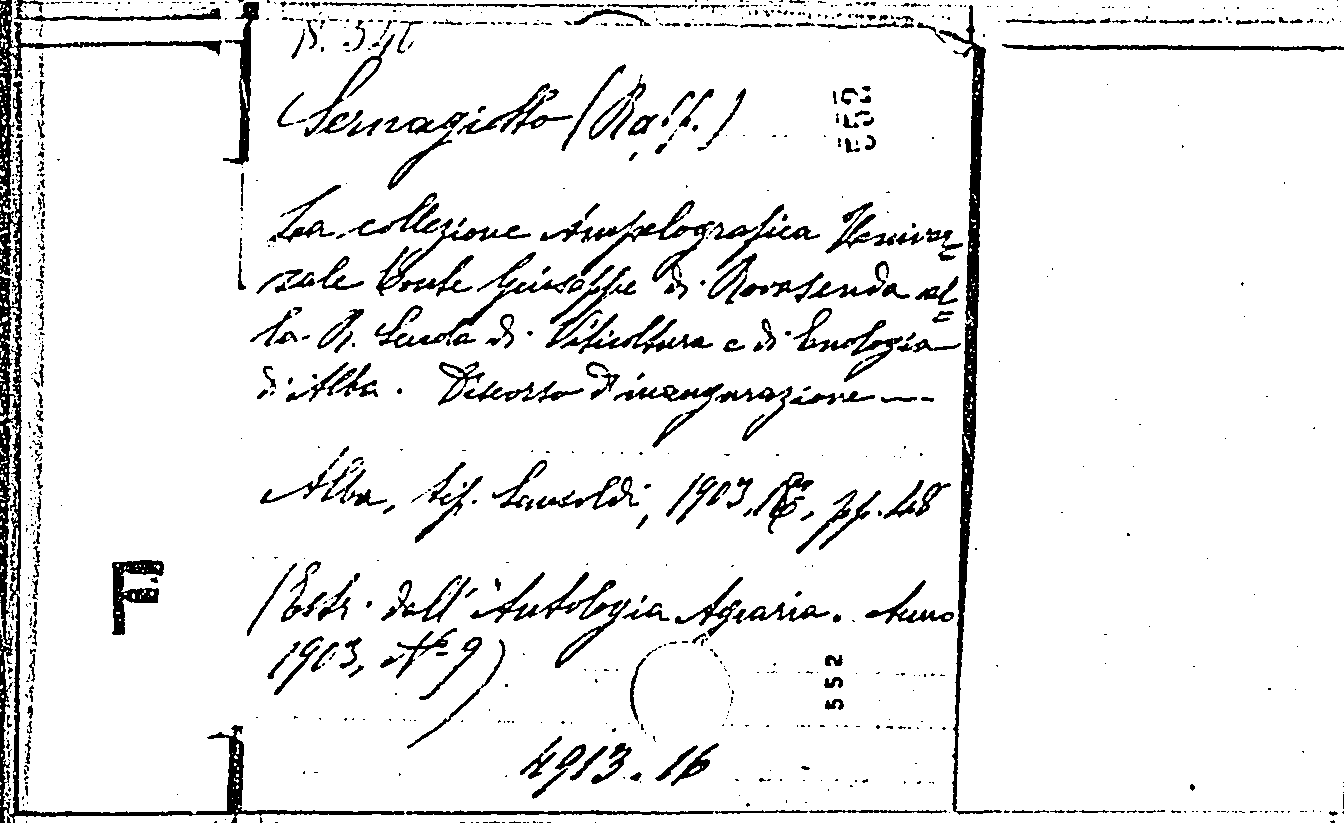 Sernagiotto (Raff.)
552
La collezione Ampelografica Univer=
sale Conte Giuseppe di Rovasenda al=
la R. Scuola di Viticoltura e di Enologia
di Alba. Discorso d'inaugurazione
Alba, tip. Sansoldi, 1903, 16º, pp. 48
(Estr. dall' "Antologia Agraria. Anno
1903, Nº 9)
552
4913.16
F